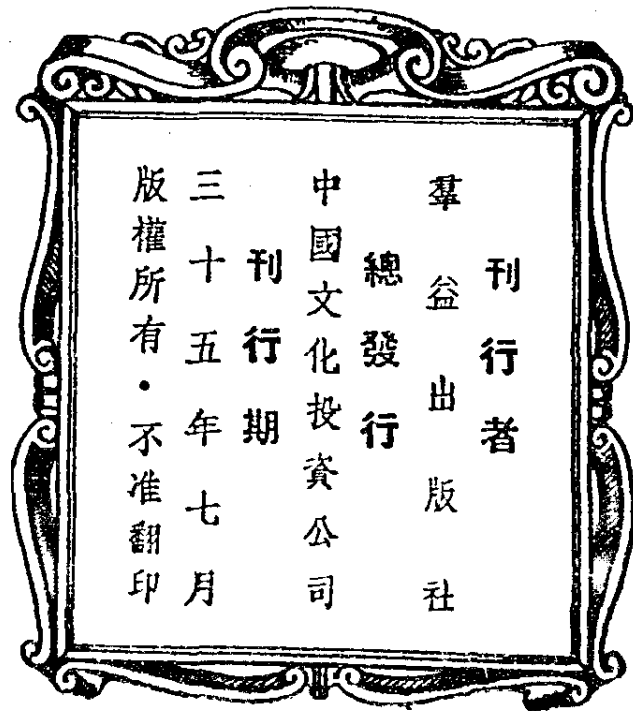 刊行者
羣益出版社
總發行
中國文化投資公司
刊行期
三十五年七月
版權所有・不准翻印